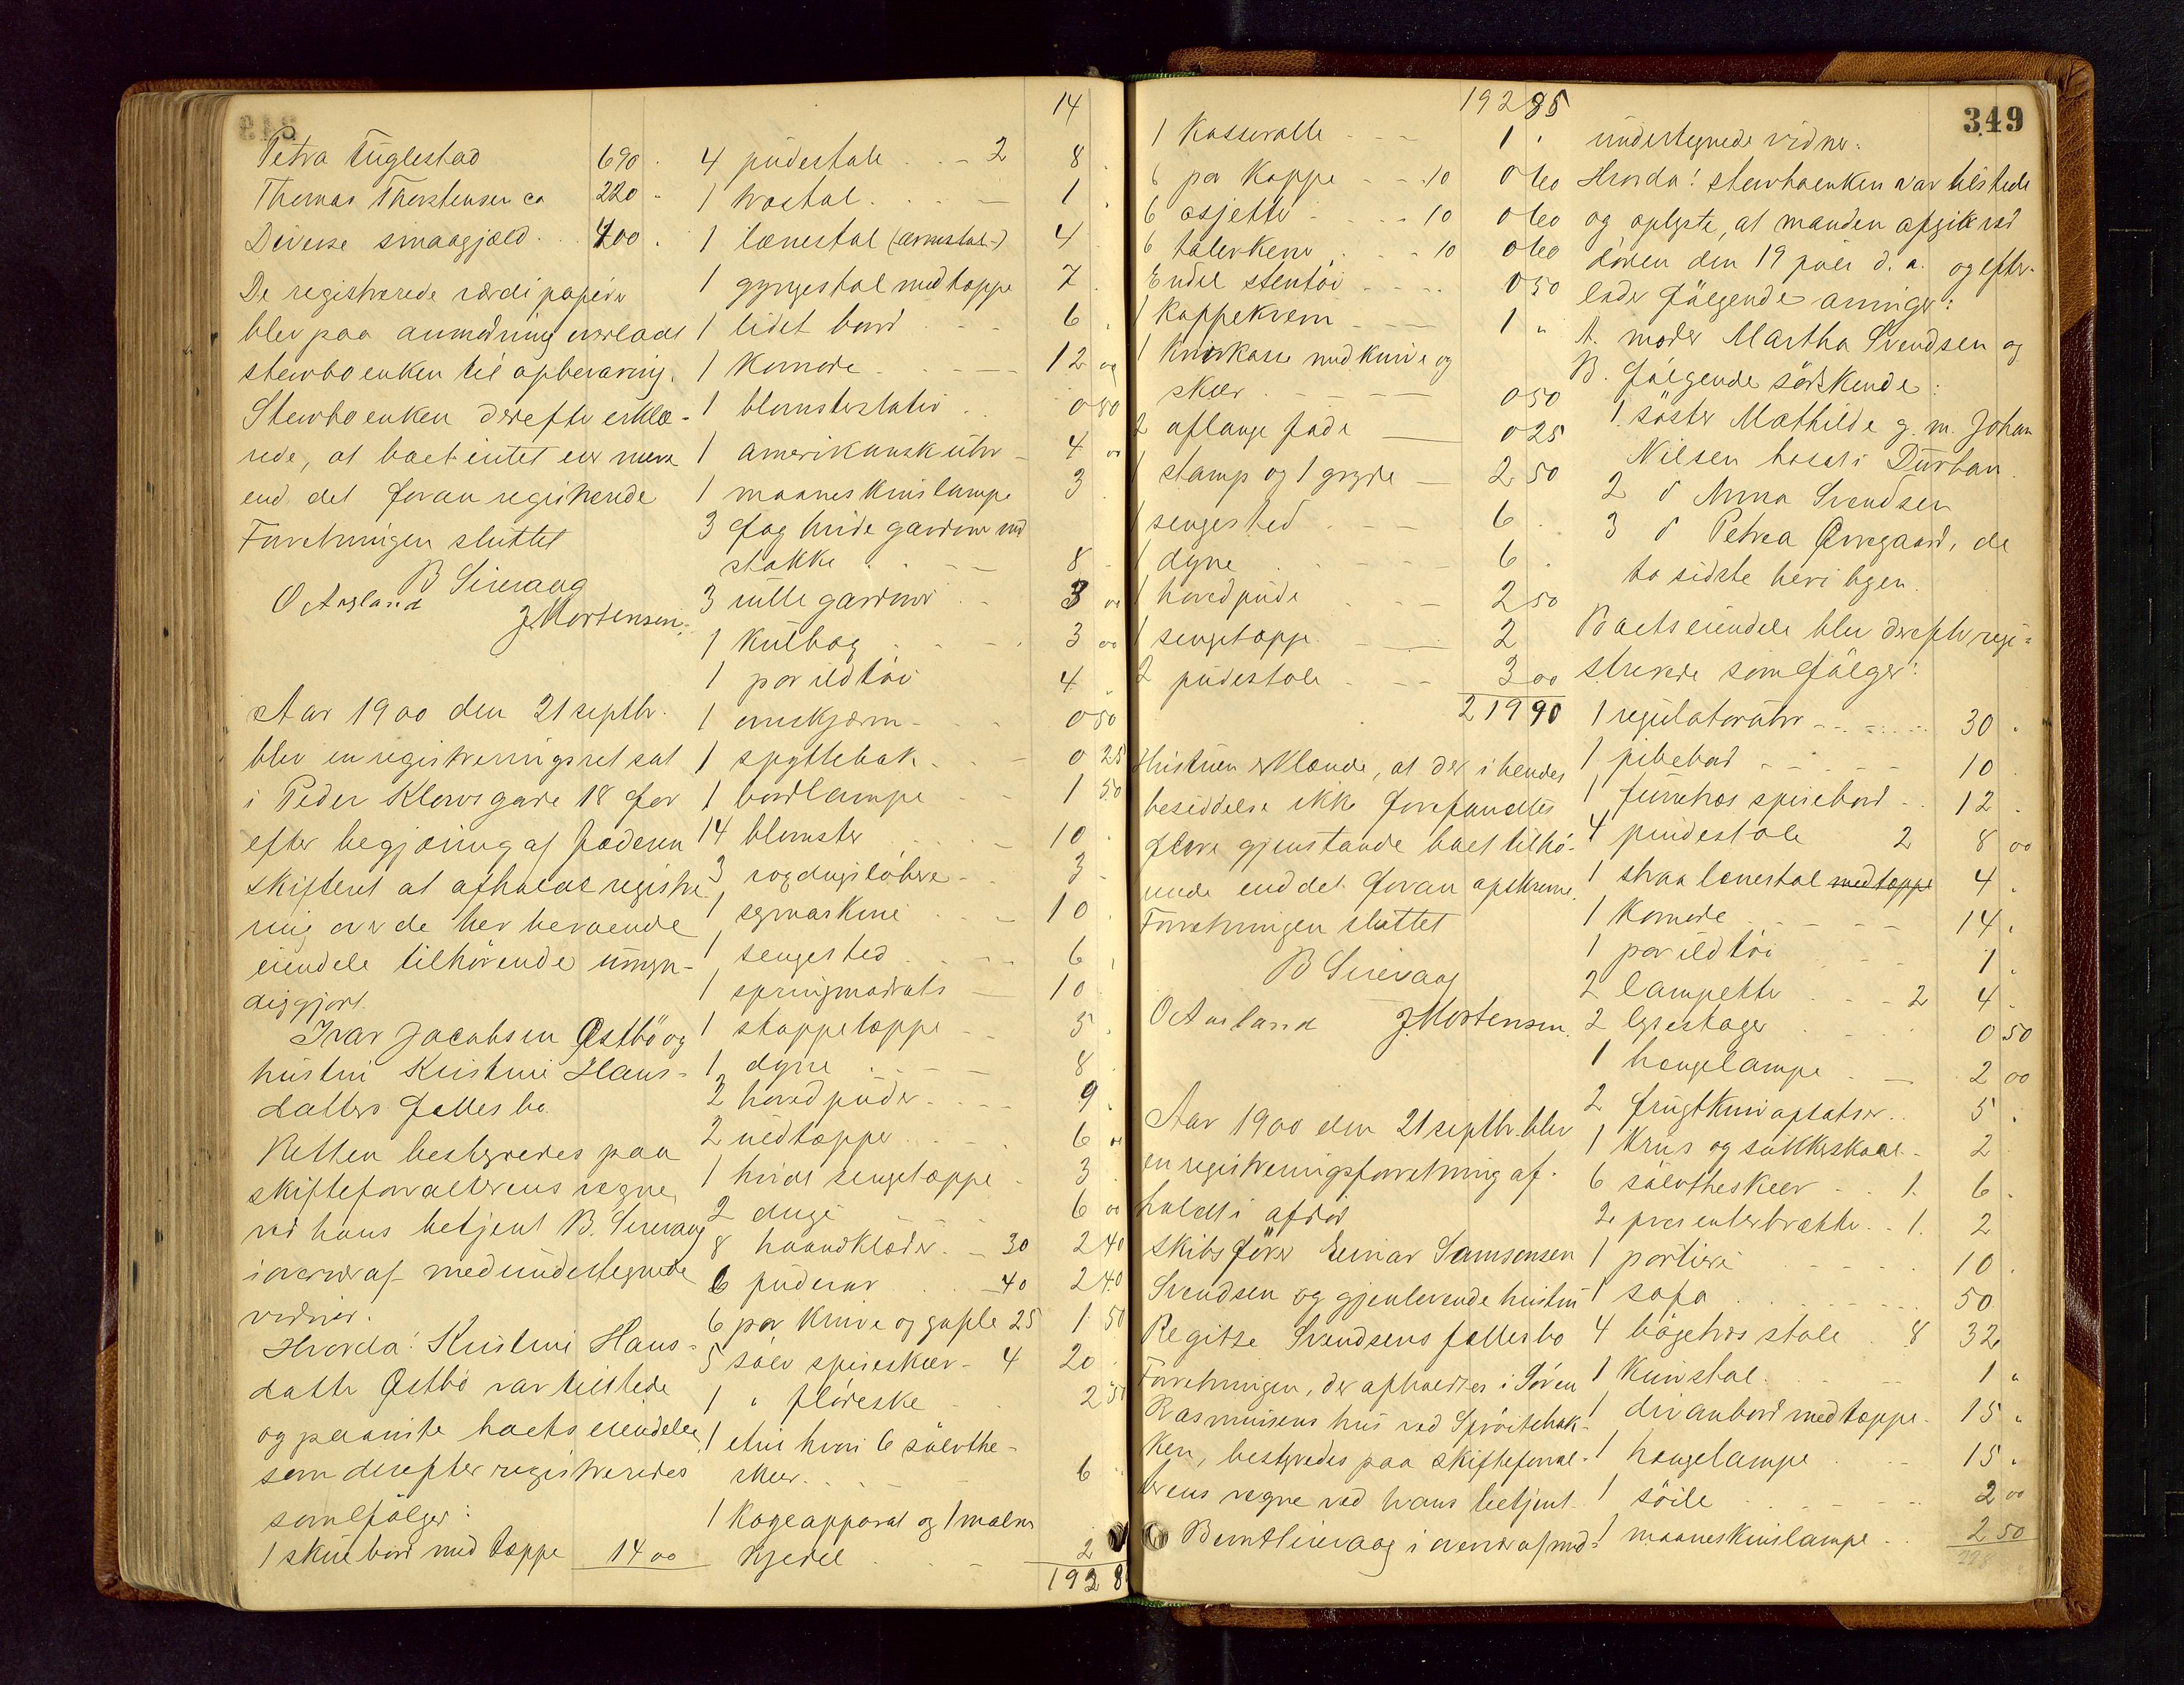 Petra Tuglestad 690 .
Thomas Thorstensen ca 220 -
Diverse smaagjæld . . 400 .
De registrerede værdipapirer
blev paa anmodning overladt
stervboenken til opbevaring.
Stervboenken derefter erklæ-
rede, at boet intet eier mere
end det foran registrerede
Forretningen sluttet
B Sirevaag
O Aasland
J. Mortensen.
Aar 1900 den 21 septbr.
blev en registreringsret sat
i Peder Klowsgade 18 for
efter begjæring af fader
skifteret at afholde registre
ring over de her beroende
eiendele tilhørende umyn-
diggjort.
Ivar Jacobsen Østbø og
hustru Kristine Hans-
datters fællesbo.
Retten bestyredes paa
skifteforvalterens vegne
ved hans betjent B. Sirevaag
i overvær af medundertegnede
vidner.
Hvorda! Kristine Hans-
datter Østbø var tilstede
og paaviste boets eiendele
som derefter registreredes
som følger:
1 skrivebord med tæppe 14 00
14
4 pudestole . . - 2 8 .
1 træstol . . . . - 1 .
1 lænestol (ærmestol-) 4 .
1 gyngestol med tæppe 7 .
1 lidet bord . . - - 6 .
1 Komode . . . - - 12 00
1 blomsterstativ . . 0 80
1 amerikansk uhr - 4 00
1 maaneskinslampe 3 .
3 fag hvide gardiner med
stokke . . - - 8 -
3 rullegardiner . . - 3 00
1 Kulbog . . - - . 3 00
1 par ildtøi 4 .
1 ovnskjærm - - - 0 50
1 spyttebak . - - - 0 25
1 bordlampe - - 1 50
14 blomster . . . - 10 .
3 vogdugsløbere - - 3 -
1 symaskine . . . - 10 .
1 sengested . . - - 6 .
1 springmadrats - 10 .
1 stoppetæppe - 5 .
1 dyne . . - - - 8 .
2 hovedpuder - - - 9 .
2 uldtæpper . - - . 6 00
1 hvidt sengetæppe - 3 .
2 duge . . . . - 6 00
8 haandklæder . - 30 2 40
6 pudevar . . . - 40 2 40
6 par Knive og gafle 25 1 50
5 sølv spiseskeer - 4 20 .
1 " fløteske . . 2 50
1 etui hvori 6 sølvthe-
skeer . . . 6 .
1 Kogeapparat og 1 malm
Kjedel . . . - 2
192 8
349
192 85
1 Kasserolle - - - 1 .
6 par Koppe - - - 10 0 60
6 asjetter - - - - 10 0 60
6 talerkener . - - 10 0 60
Endel stentøi - - - . 0 50
1 Kaffekvern - - - 1 "
1 Knivkasse med knive og
skeer . - - - - 0 50
2 aflange fade - 0 25
1 stamp og 1 gryde - 2 50
1 sengested . - - - 6 .
1 dyne . . . - - - 6 .
1 hovedpude . . - - 2 50
1 sengetæppe - - - 2
2 pudestole - - - 3 00
219 90
Hustruen erklærede, at der i hendes
besiddelse ikke forefandtes
flere gjenstande boet tilhø-
rende end det foran opskrevne.
Forretningen sluttet
B Sirevaag
O Aasland J. Mortensen.
Aar 1900 den 21 septbr. blev
en registreringsforretning af-
holdt i afdød
skibsfører Einar Samsonsen
Svendsen og gjenlevende hustru
Regitze Svendsens fællesbo
Forretningen, der afholdtes i Søren
Rasmussens hus ved Sprøitebak-
ken, bestyredes paa skifteforval-
terens vegne ved hans betjent
Bernt Sirevaag i overvær af med-
undertegnede vidner.
Hvorda! Stervboenken var tilstede
og oplyste, at manden afgik ved
døden den 19 juli d. a. og efter-
lader følgende arvinger:
A. moder Martha Svendsen og
B. følgende søskende:
1. søster Mathilde g. m. Johan
Nilsen bosat i Durban
2 d Anna Svendsen
3 d Petra Ørregaard, de
to sidste her i byen.
Boets eiendele blev derefter regi-
strerede som følger:
1 regulatoruhr - - . - - . . 30 .
1 pibebord - - - - - - 10
1 furutræs spisebord - . 12 .
4 pindestole 2 8 00
1 straa lænestol med tæppe 4 .
1 Komode . . - - - - 14 .
1 par ildtøi . . - - - 1 .
2 lampetter . . - - 2 4 .
2 lysestager . . - - . 0 50
1 hængelampe . - 2 00
2 frugtknivopsatser . . 5 .
1 Krus og sukkerskaal - 2
6 sølvtheskeer - - 1. 6 .
2 presenterbrætter . . 1. 2
1 portiere . - - - - . 10 .
1 sofa . . . . - - - - 50
4 bøgetræs stole . . 8 32
1 Kurvstol . . . - - 1 "
1 divanbord med tæppe . 15 "
1 hængelampe . - - 15 "
1 søile . . - - - - 2 00
1 maaneskinslampe . . 2 50
228